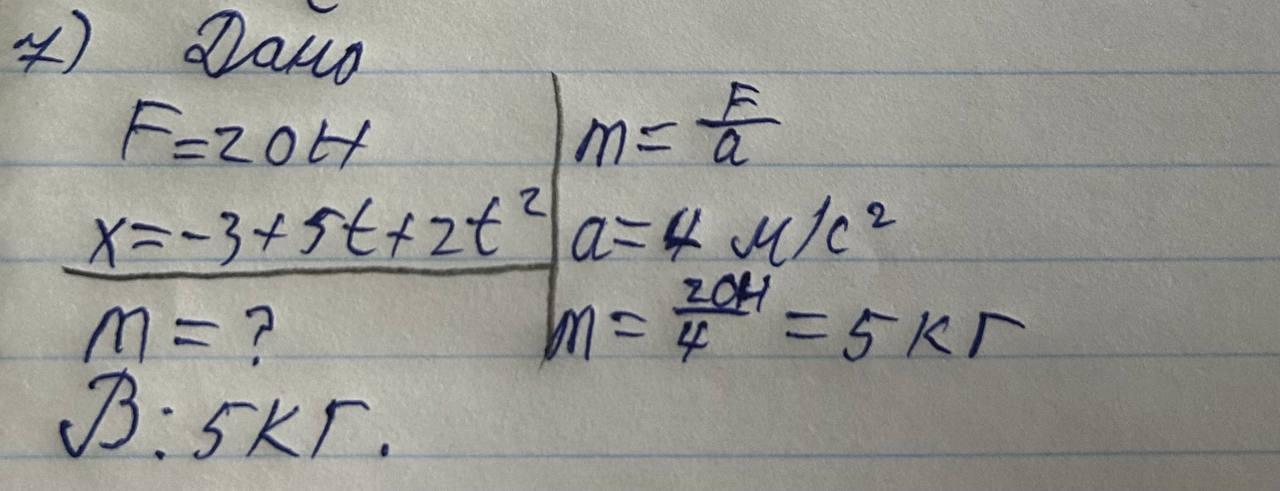 7) Дано
F=20Н
x=-3+5t+2t²
m=?
m=F/a
a=4 м/с²
m=20Н/4=5кг
В: 5кг.